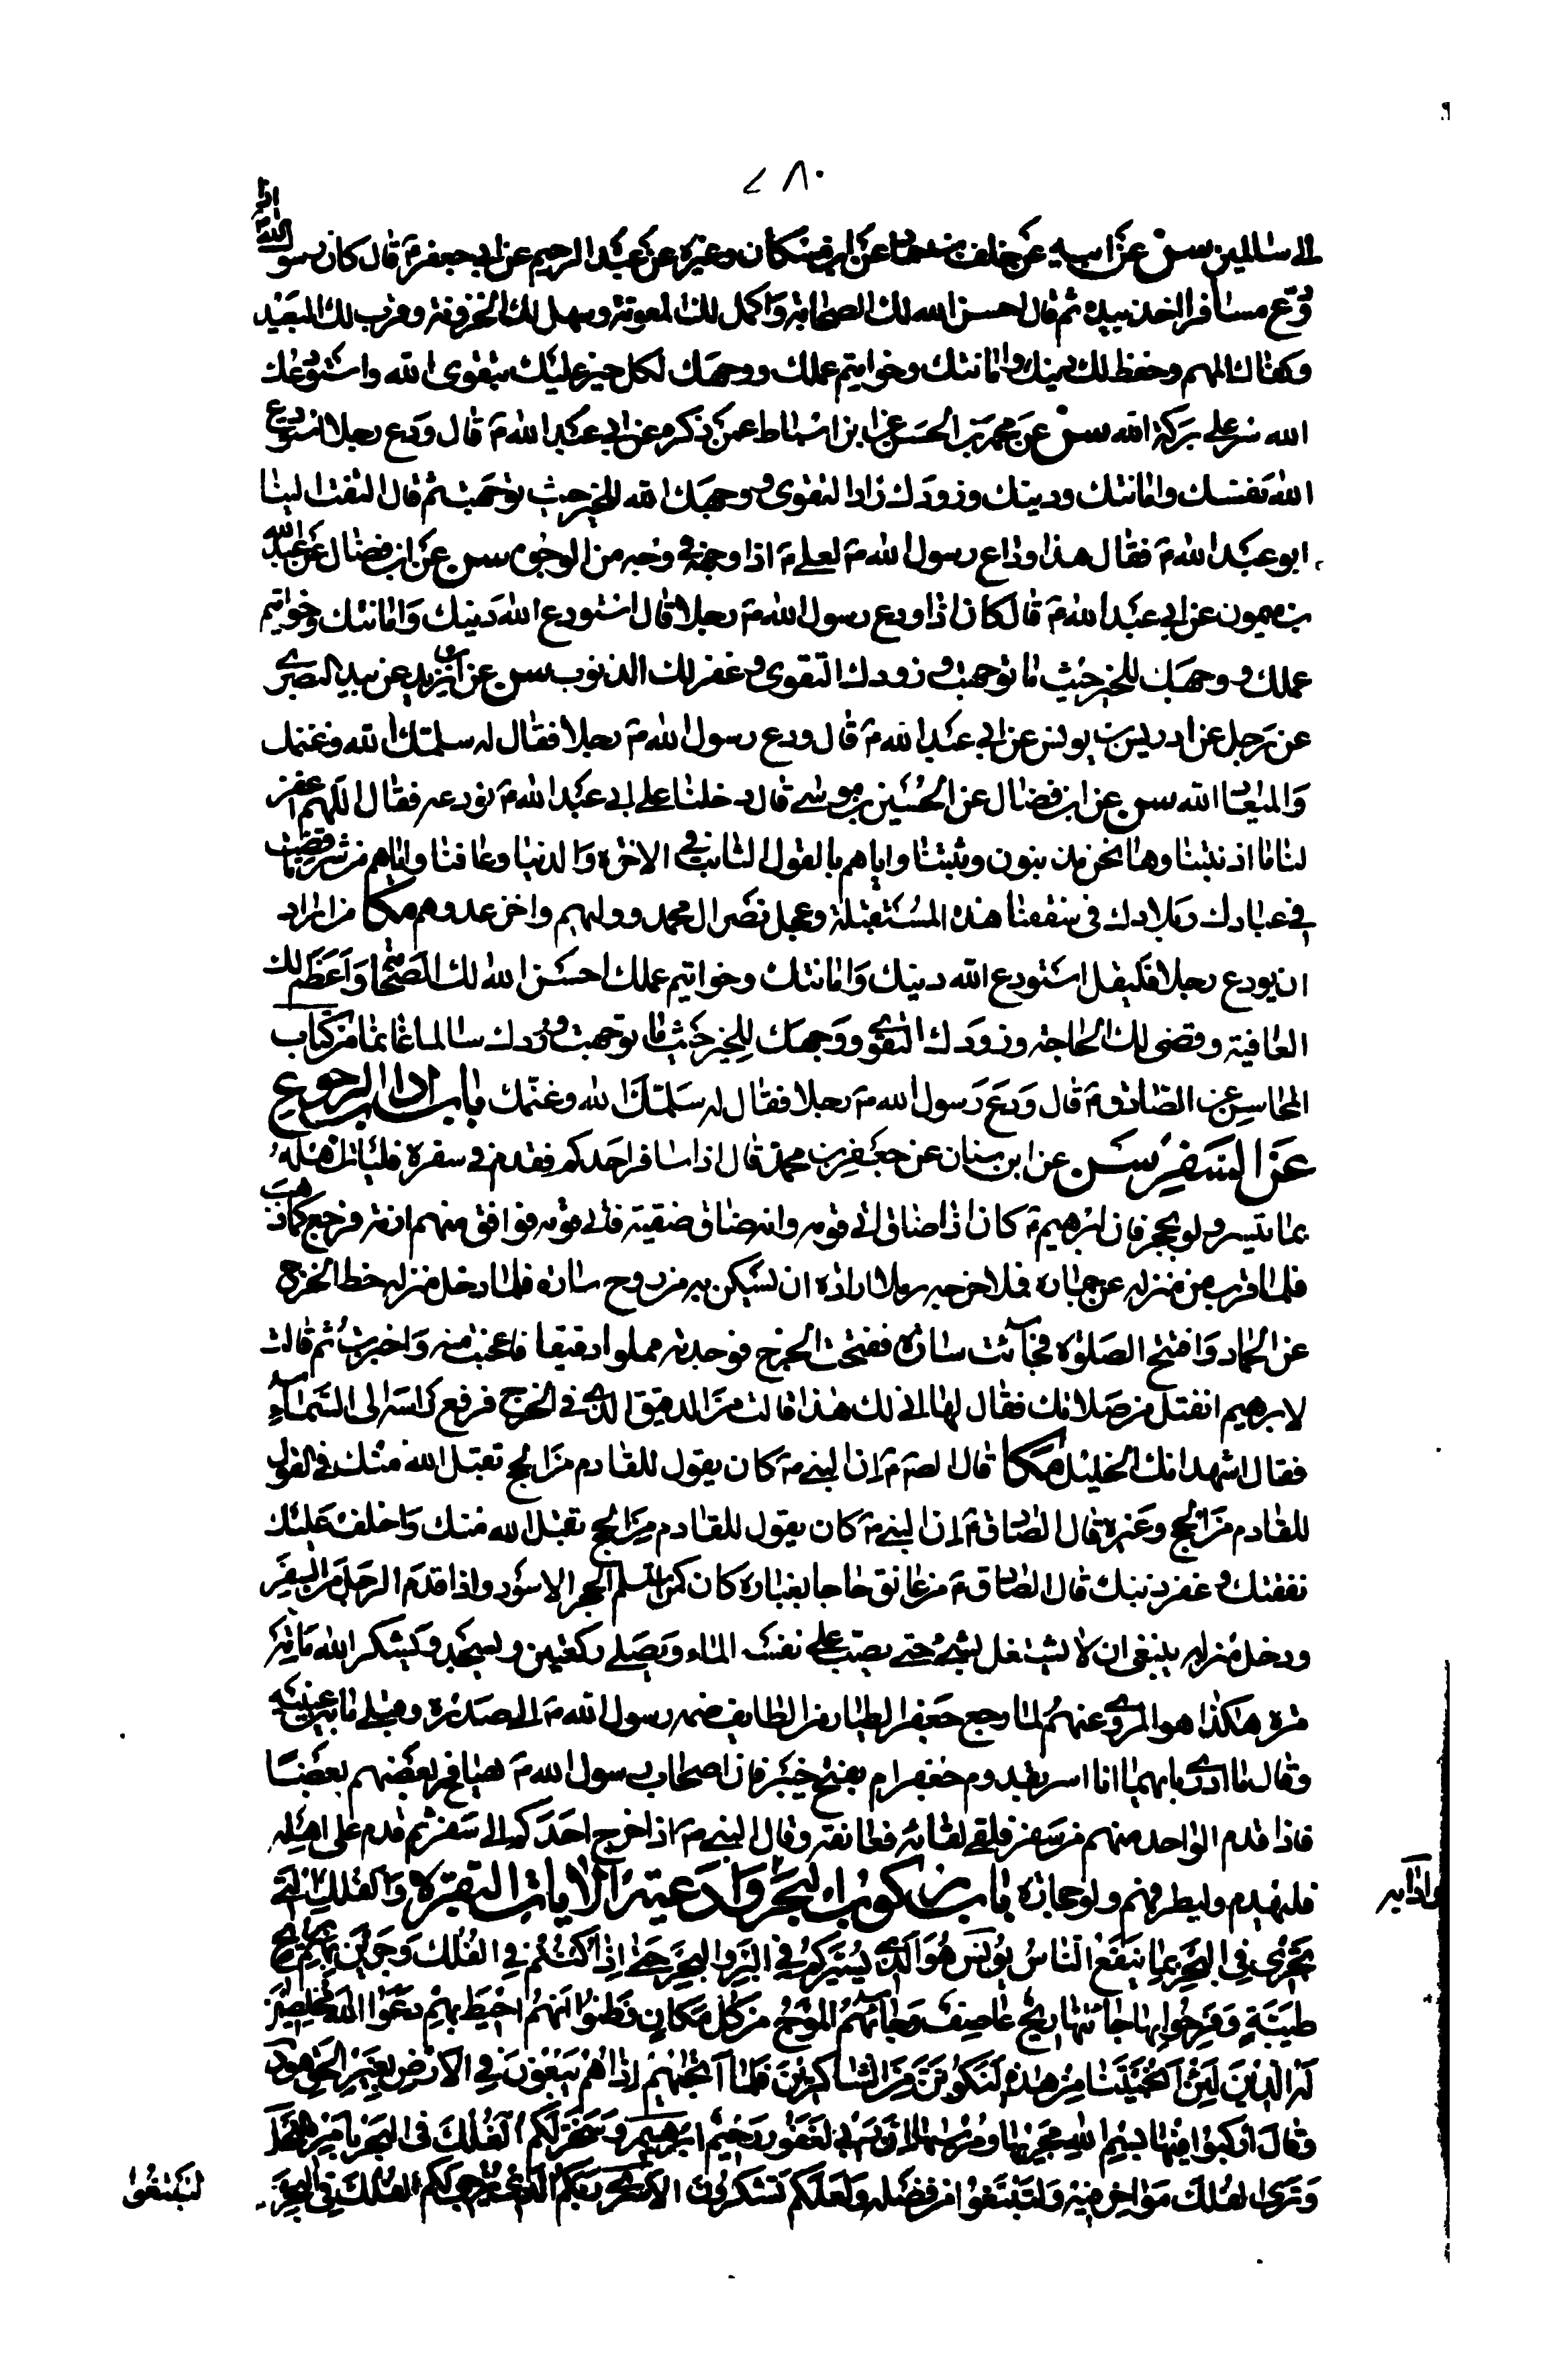 ٧٨٠
الى سالمين سن عن ابيه عن خلف بن حماد عن ابن مسكان وغيره عن عبد الرحيم عن ابي جعفر ع قال كان رسول الله اذا
ودع مسافرا اخذ بيده ثم قال احسن الله لك الصحابة واكمل لك المعونة وسهل لك الحزونة وقرب لك البعيد
وكفاك المهم وحفظ لك دينك وامانتك وخواتيم عملك ووجهك لكل خير عليك بتقوى الله واستودعك
الله سر على بركة الله سن عن محمد بن الحسن عن ابن اسباط عمن ذكره عن ابي عبد الله ع قال ودع رجلا استودع
الله نفسك وامانتك ودينك وزودك زاد التقوى ووجهك الله للخير حيث توجهت ثم قال التفت الينا
ابو عبد الله ع فقال هذا وداع رسول الله ص لعلي ع اذا وجهه في وجه من الوجوه سن عن ابن فضال عن عبد الله
بن ميمون عن ابي عبد الله ع قال كان اذا ودع رسول الله ص رجلا قال استودع الله دينك وامانتك وخواتيم
عملك ووجهك للخير حيث ما توجهت وزودك التقوى وغفر لك الذنوب سن عن ابن يزيد عن عبيد البصري
عن رجل عن ادريس بن يونس عن ابي عبد الله ع قال ودع رسول الله ص رجلا فقال له سلمك الله وغنمك
والميعاد الله سن عن ابن فضال عن الحسين بن موسى قال دخلنا على ابي عبد الله ع نودعه فقال اللهم اغفر
لنا ما اذنبنا وما نحن مذنبون وثبتنا واياهم بالقول الثابت في الاخرة والدنيا وعافنا واياهم من شر ما قضيت
في عبادك وبلادك في سنتنا هذه المستقبلة وعجل نصر ال محمد ووليهم واخز عدوهم مكا من اراد
ان يودع رجلا فليقل استودع الله دينك وامانتك وخواتيم عملك احسن الله لك الصحابة واعظم لك
العافية وقضى لك الحاجة وزودك التقوى ووجهك للخير حيث ما توجهت وردك سالما غانما من كتاب
المحاسن عن الصادق ع قال ودع رسول الله ص رجلا فقال له سلمك الله وغنمك باب اداب الرجوع
عن السفر سن عن ابن سنان عن جعفر بن محمد قال اذا سافر احدكم فقدم من سفره فليات اهله
بما تيسر ولو بحجر فان ابرهيم ع كان اذا ضاق اتى قومه وانه ضاق ضيقة فاتى قومه فوافق منهم ازمة فرجع كما ذهب
فلما قرب من منزله عن حماره فملا خرجه رملا اراده ان يسكن به من روح ساره فلما دخل منزله حط الخرج
عن الحمار وافتتح الصلوة فجائت ساره ففتحت الخرج فوجدته مملوا دقيقا فاعجنت منه واخبزت ثم قالت
لابرهيم انفتل من صلاتك فقال لها انى لك هذا قالت من الدقيق الذي في الخرج فرفع راسه الى السماء
فقال اشهد انك الخليل مكا قال الصادق ع ان النبي ص كان يقول للقادم من الحج تقبل الله منك في القول
للقادم من الحج وغيره قال الصادق ع ان النبي ص كان يقول للقادم من الحج تقبل الله منك واخلف عليك
نفقتك وغفر ذنبك قال الصادق ع من عانق حاجا بغباره كان كمن استلم الحجر الاسود واذا قدم الرجل من السفر
ودخل منزله ينبغي ان لا يشتغل بشيء حتى يصب على نفسه الماء ويصلي ركعتين ويسجد ويشكر الله مائة
مرة هكذا هو المروي عنهم لما رجع جعفر الطيار من الطايف ضمه رسول الله ص الى صدره وقبل ما بين عينيه
وقال ما ادري بايهما انا اسر بقدوم جعفر ام بفتح خيبر فان اصحاب رسول الله ص يصافح بعضهم بعضا
فاذا قدم الواحد منهم من سفر فلقى اخاه فعانقه وقال النبي ص اذا خرج احدكم الى سفر ثم قدم على اهله
فليهدهم وليطرفهم ولو حجارة باب ركوب البحر وادعيته الايات البقرة والفلك التي
تجري في البحر بما ينفع الناس يونس هو الذي يسيركم في البر والبحر حتى اذا كنتم في الفلك وجرين بهم بريح
طيبة وفرحوا بها جائتها ريح عاصف وجائهم الموج من كل مكان وظنوا انهم احيط بهم دعوا الله مخلصين
له الدين لئن انجيتنا من هذه لنكونن من الشاكرين فلما انجيهم اذا هم يبغون في الارض بغير الحق هود
وقال اركبوا فيها بسم الله مجريها ومرسيها ان ربي لغفور رحيم ابرهيم وسخر لكم الفلك في البحر بامره النحل
وترى الفلك مواخر فيه ولتبتغوا من فضله ولعلكم تشكرون الاسرى ربكم الذي يزجي لكم الفلك في البحر
واذابه
لتبتغوا